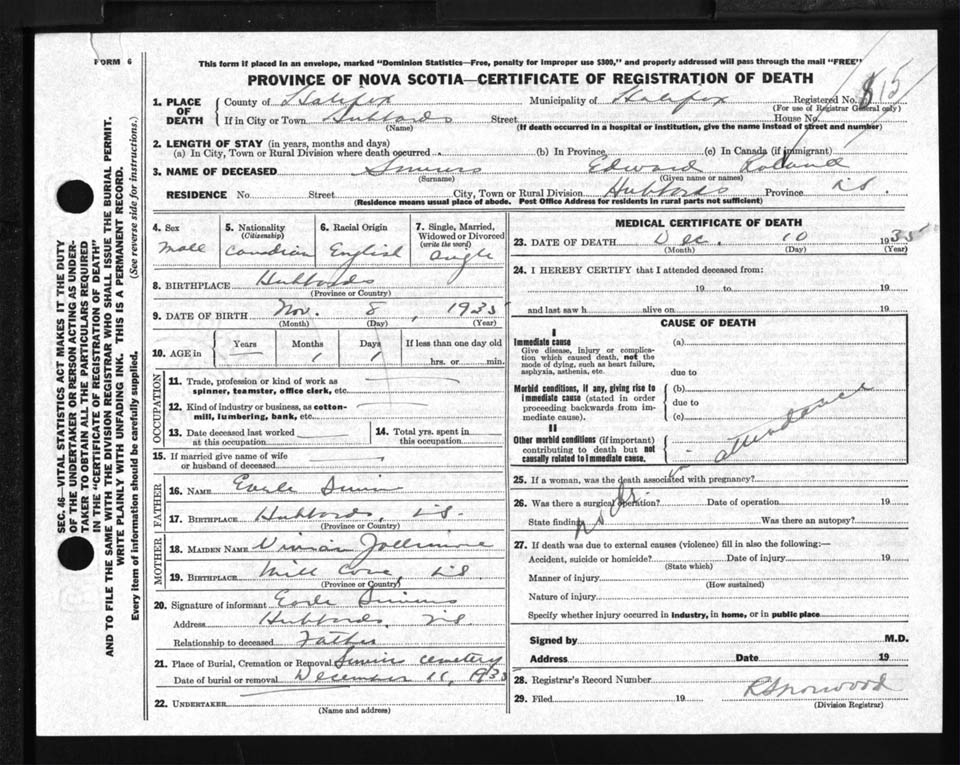 FORM 6
This form if placed in an envelope, marked "Dominion Statistics—Free, penalty for improper use $300," and properly addressed will pass through the mail "FREE"
PROVINCE OF NOVA SCOTIA—CERTIFICATE OF REGISTRATION OF DEATH
1. PLACE OF DEATH County of Halifax Municipality of Halifax Registered No.
(For use of Registrar General only)
If in City or Town Hubbards Street House No.
(Name) (If death occurred in a hospital or institution, give the name instead of street and number)
2. LENGTH OF STAY (in years, months and days)
(a) In City, Town or Rural Division where death occurred (b) In Province (c) In Canada (if immigrant)
3. NAME OF DECEASED Edward Roland
(Surname) (Given name or names)
RESIDENCE No. Street City, Town or Rural Division Hubbards Province N.S.
(Residence means usual place of abode. Post Office Address for residents in rural parts not sufficient)
4. Sex 5. Nationality (Citizenship) 6. Racial Origin 7. Single, Married, Widowed or Divorced (write the word)
Male Canadian English Single
8. BIRTHPLACE Hubbards
(Province or Country)
9. DATE OF BIRTH Nov. 8, 1935
(Month) (Day) (Year)
10. AGE in Years Months Days If less than one day old
— 1 1 hrs. or min.
OCCUPATION
11. Trade, profession or kind of work as spinner, teamster, office clerk, etc.
12. Kind of industry or business, as cotton-mill, lumbering, bank, etc.
13. Date deceased last worked at this occupation 14. Total yrs. spent in this occupation
15. If married give name of wife or husband of deceased
FATHER
16. NAME Earle
17. BIRTHPLACE Hubbards, N.S.
(Province or Country)
MOTHER
18. MAIDEN NAME Vivian Jollimore
19. BIRTHPLACE Mill Cove, N.S.
(Province or Country)
20. Signature of informant Earle
Address Hubbards, N.S.
Relationship to deceased Father
21. Place of Burial, Cremation or Removal cemetery
Date of burial or removal December 11, 1935
22. UNDERTAKER
(Name and address)
MEDICAL CERTIFICATE OF DEATH
23. DATE OF DEATH Dec. 10 1935
(Month) (Day) (Year)
24. I HEREBY CERTIFY that I attended deceased from:
19 to 19
and last saw h alive on 19
CAUSE OF DEATH
I
Immediate cause
Give disease, injury or complication which caused death, not the mode of dying, such as heart failure, asphyxia, asthenia, etc.
(a)
due to
Morbid conditions, if any, giving rise to immediate cause (stated in order proceeding backwards from immediate cause).
(b)
due to
(c)
II
Other morbid conditions (if important) contributing to death but not causally related to immediate cause.
no Dr. in attendance
25. If a woman, was the death associated with pregnancy?
26. Was there a surgical operation? Date of operation 19
State findings Was there an autopsy?
27. If death was due to external causes (violence) fill in also the following:—
Accident, suicide or homicide? Date of injury 19
(State which)
Manner of injury
(How sustained)
Nature of injury
Specify whether injury occurred in industry, in home, or in public place
Signed by M.D.
Address Date 19
28. Registrar's Record Number
29. Filed 19 Norwood
(Division Registrar)
SEC. 46—VITAL STATISTICS ACT MAKES IT THE DUTY
OF THE UNDERTAKER OR PERSON ACTING AS UNDER-
TAKER "TO OBTAIN ALL THE PARTICULARS REQUIRED
IN THE "CERTIFICATE OF REGISTRATION OF DEATH"
AND TO FILE THE SAME WITH THE DIVISION REGISTRAR WHO SHALL ISSUE THE BURIAL PERMIT.
WRITE PLAINLY WITH UNFADING INK. THIS IS A PERMANENT RECORD.
Every item of information should be carefully supplied. (See reverse side for instructions.)